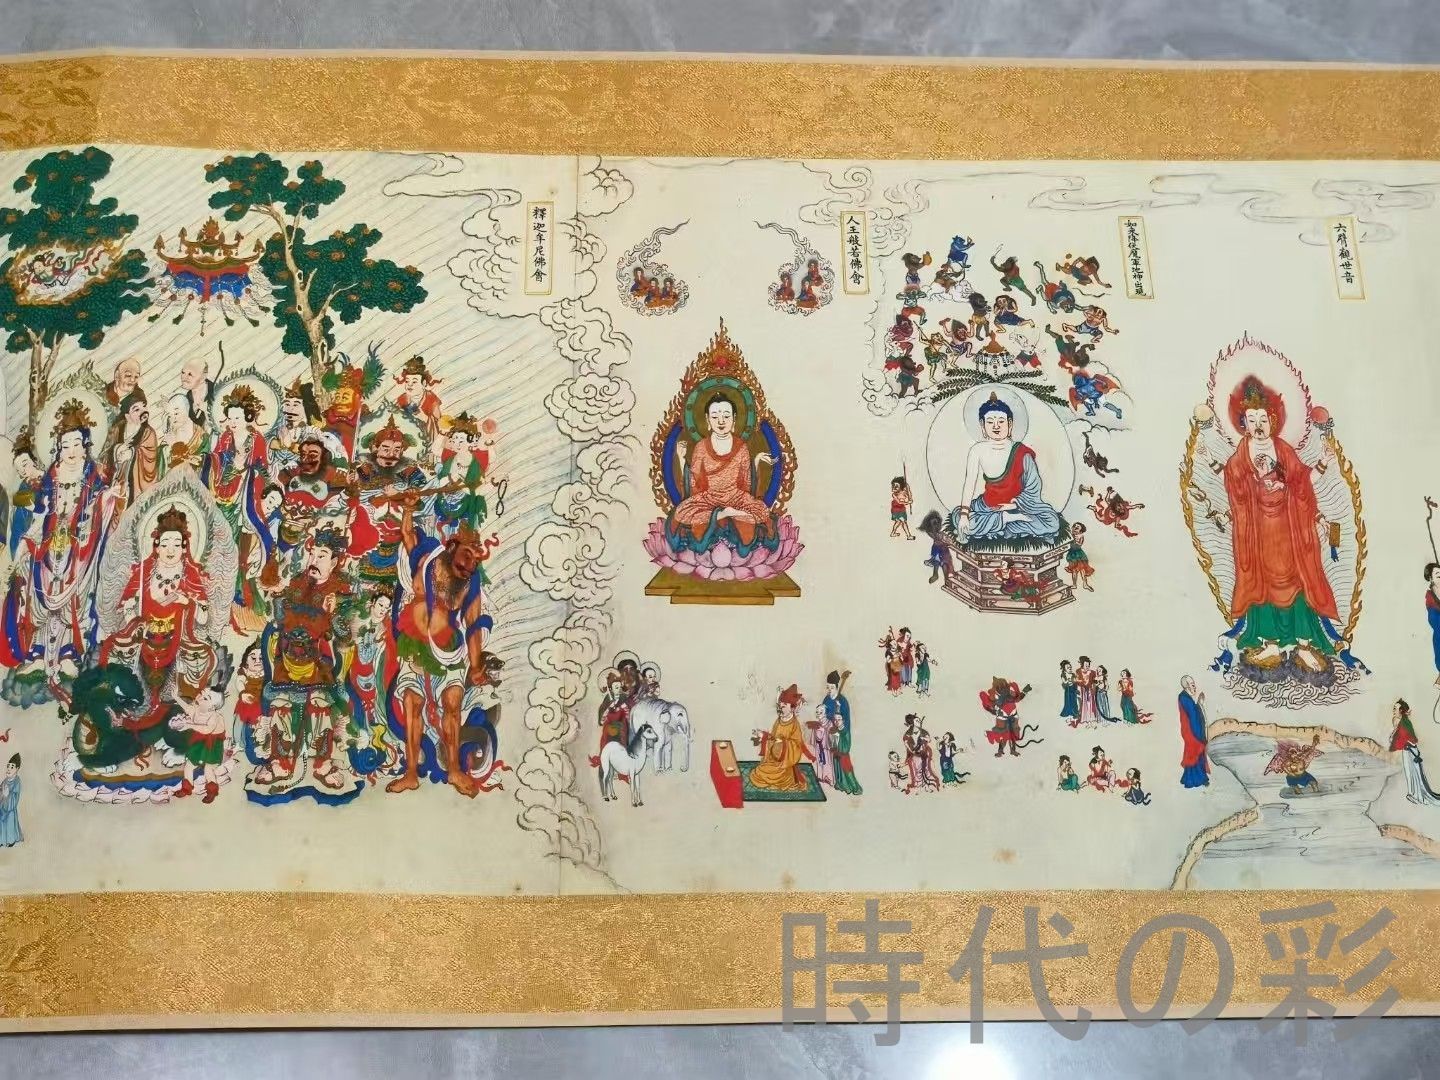 釋迦牟尼佛會
人王般若佛會
如來降伏魔軍地神出現
六臂觀世音
時代の彩